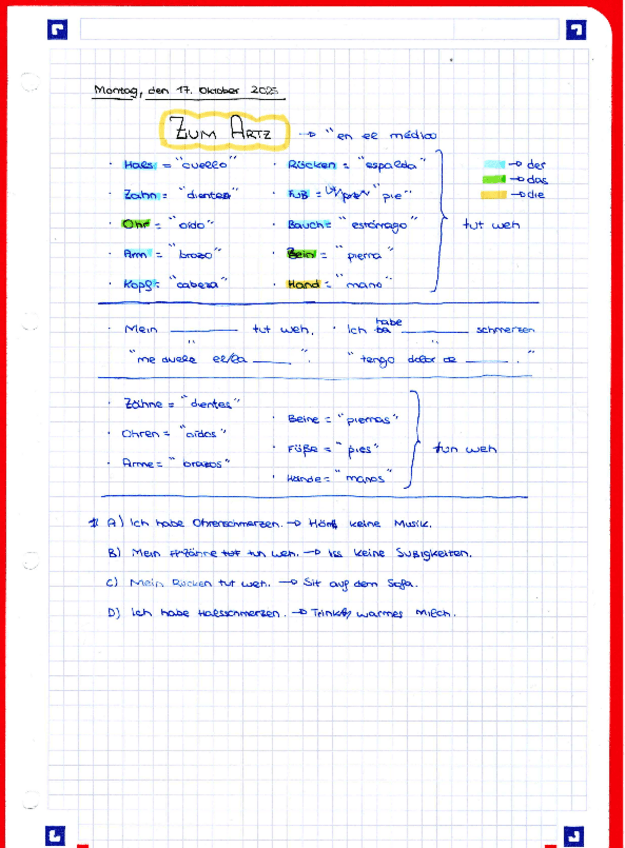 Montag, den 17. Oktober 2025
ZUM ARTZ → "en el médico
· Hals = "cuello"
· Zahn = "dientes"
· Ohr = "oído"
· Arm = "brazo"
· Kopf = "cabeza"
· Rücken = "espalda"
· Fuß = "pie"
· Bauch = "estómago"
· Bein = "pierna"
· Hand = "mano"
tut weh
→ der
→ das
→ die
· Mein ______ tut weh.
"me duele el/la ______".
· Ich habe ______ schmerzen
"tengo dolor de ______."
· Zähne = "dientes"
· Ohren = "oídos"
· Arme = "brazos"
· Beine = "piernas"
· Füße = "pies"
· Hände = "manos"
tun weh
A) Ich habe Ohrenschmerzen. → Hör keine Musik.
B) Mein Zänne tut tun weh. → Iss keine Süßigkeiten.
C) Mein Rücken tut weh. → Sit auf dem Sofa.
D) Ich habe Halsschmerzen. → Trink warmes Milch.